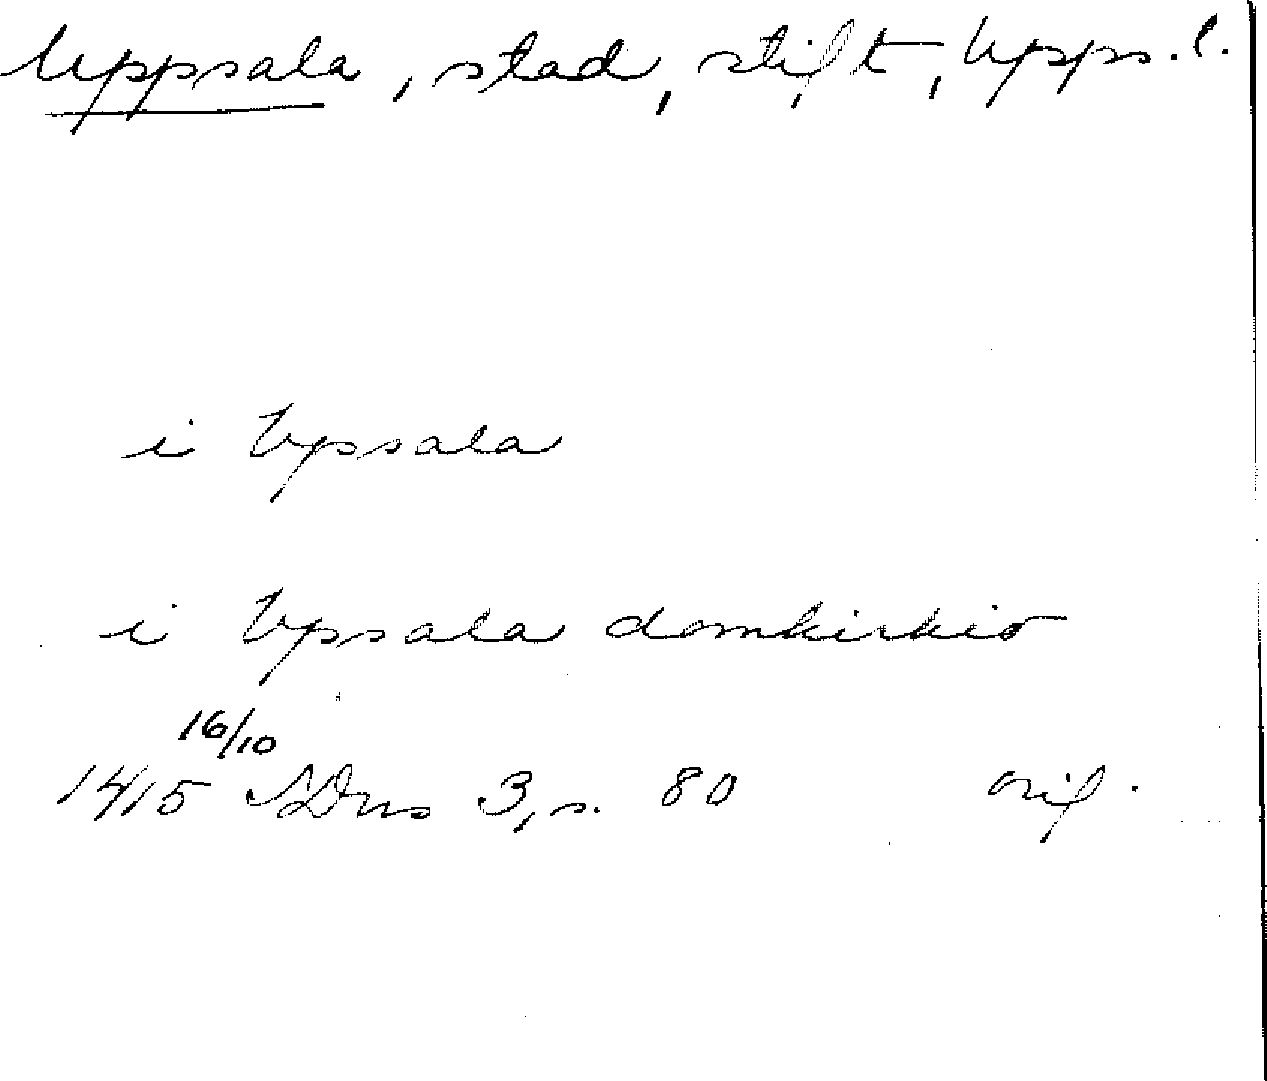 Uppsala, stad, stift, Upps. l.
i Vpsala
i Vpsala domkirkio
16/10
1415 SDns 3, s. 80 orig.